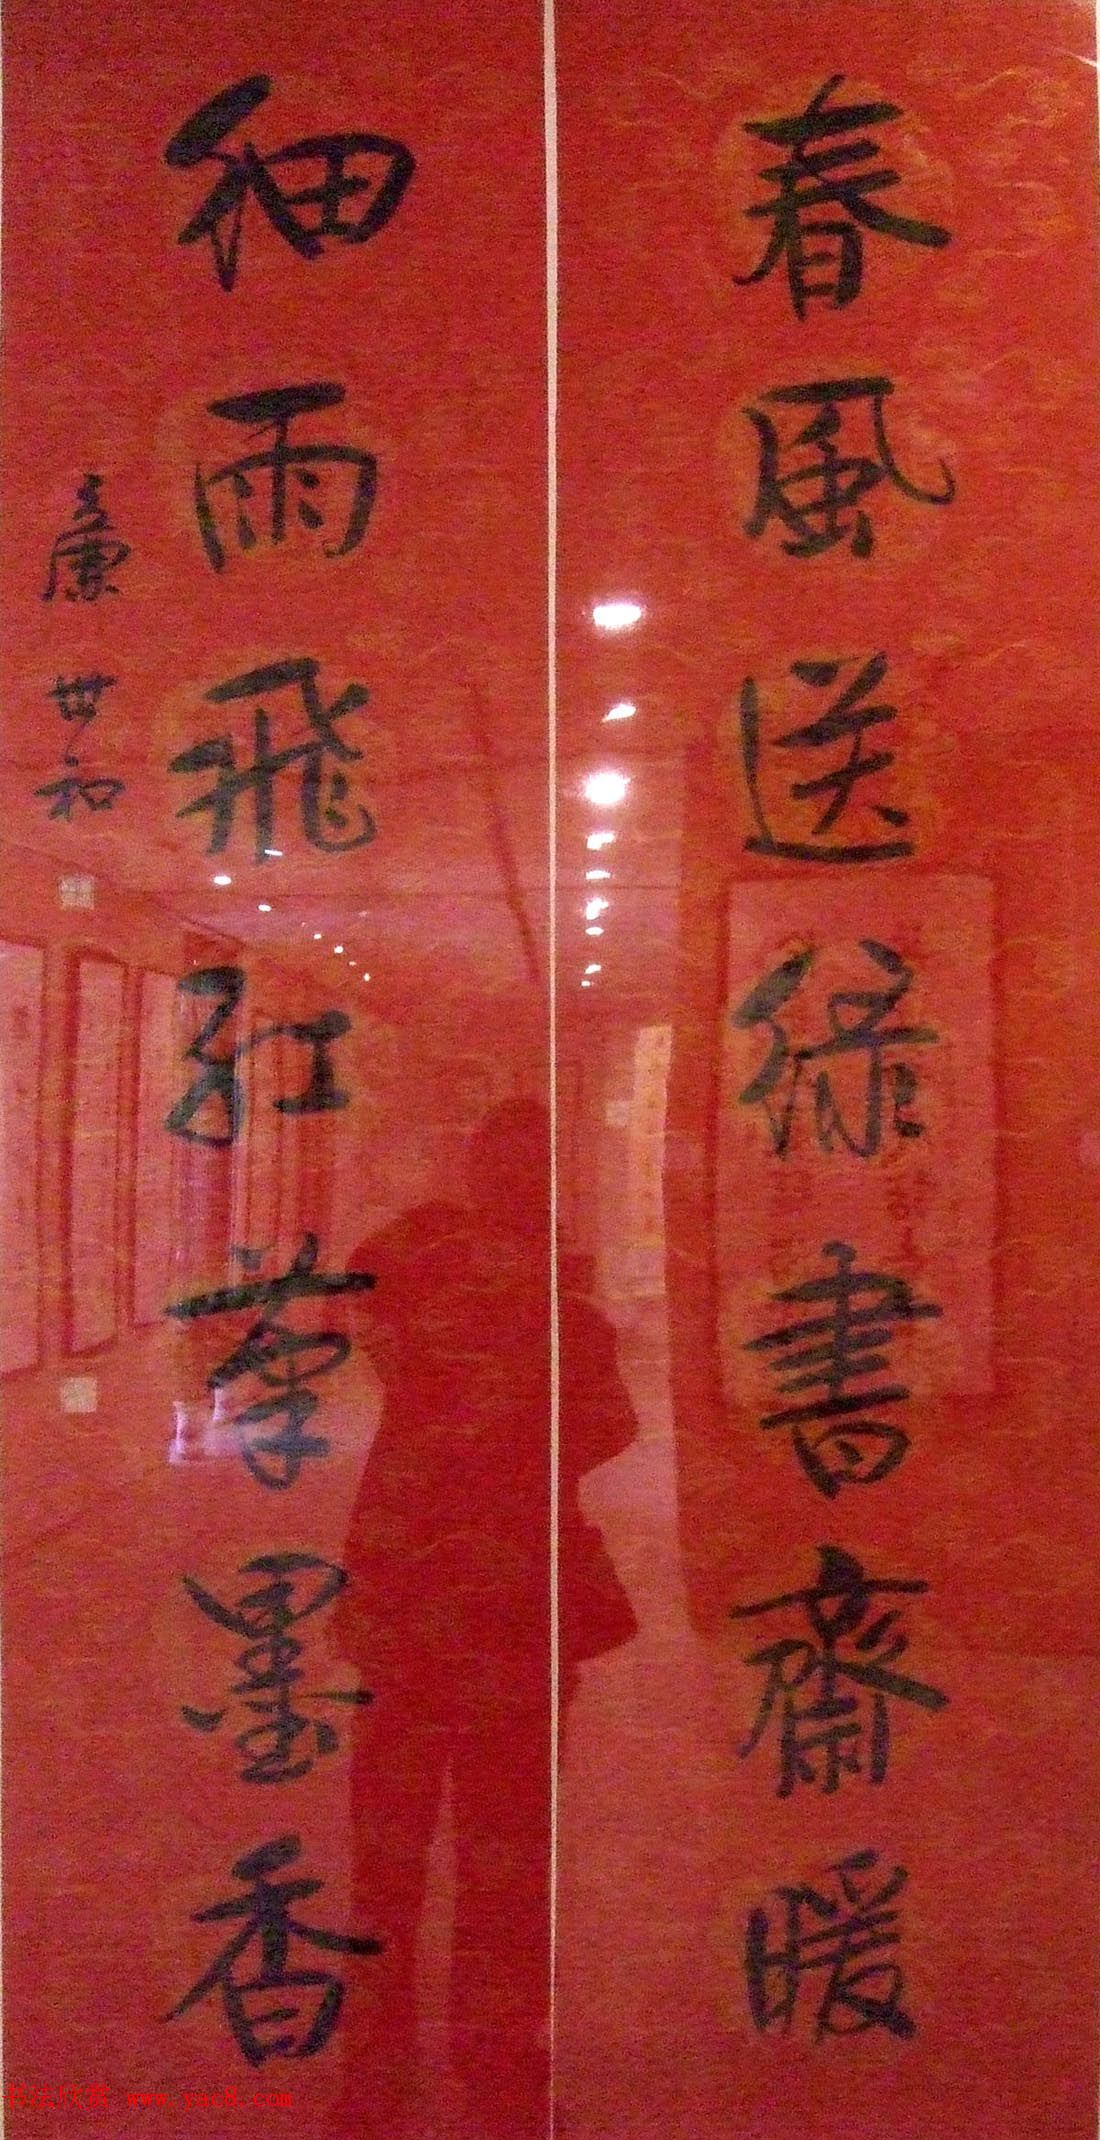 春風送緑書齋暖
細雨飛紅葦墨香
世和
书法欣赏 www.yac8.com